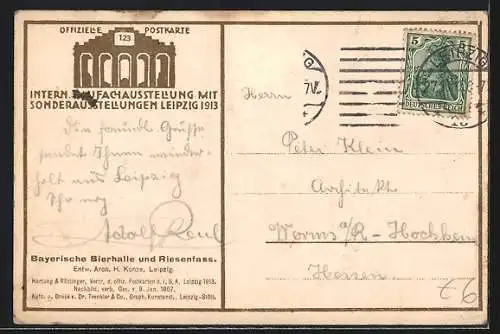 OFFIZIELLE POSTKARTE
123
INTERN. BAUFACHAUSSTELLUNG MIT
SONDERAUSSTELLUNGEN LEIPZIG 1913
Grüsse
sendet Ihnen wieder-
holt aus Leipzig
Ihr
Adolf
Bayerische Bierhalle und Riesenfass.
Entw. Arch. H. Kunze, Leipzig.
Hartung & Rötzinger, Vertr. d. offiz. Postkarten d. I. B. A. Leipzig 1913.
Nachbild. verb. Ges. v. 9. Jan. 1907.
Aufn. u. Druck v. Dr. Trenkler & Co., Graph. Kunstanst., Leipzig-Stött.
5
DEUTSCHES REICH
Herrn
Peter Klein
Architekt
Worms a/R - Hochheim
Hessen